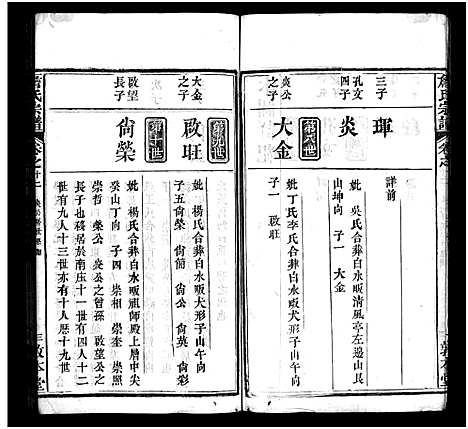 三子
琿
詳前
孔文
四子
炎
妣吳氏合葬白水畈清風亭左邊山艮
山坤向 子一 大金
第八世
炎公
之子
大金
妣丁氏李氏合葬白水畈犬形子山午向
子一 啟旺
第九世
大金
之子
啟旺
妣楊氏合葬白水畈犬形子山午向
子五 尙榮 尙簡 尙公 尙英 尙彩
第十世
啟望
長子
尙榮
妣楊氏合葬白水畈祖師殿上層中尖
癸山丁向 子四 崇相 崇奎 崇照
崇哲 榮公 炎公之曾孫 啟望公之
長子也移居於南庄十一世有四人十二
世有九人十三世亦有十人歷十九世
敦本堂
敦本堂